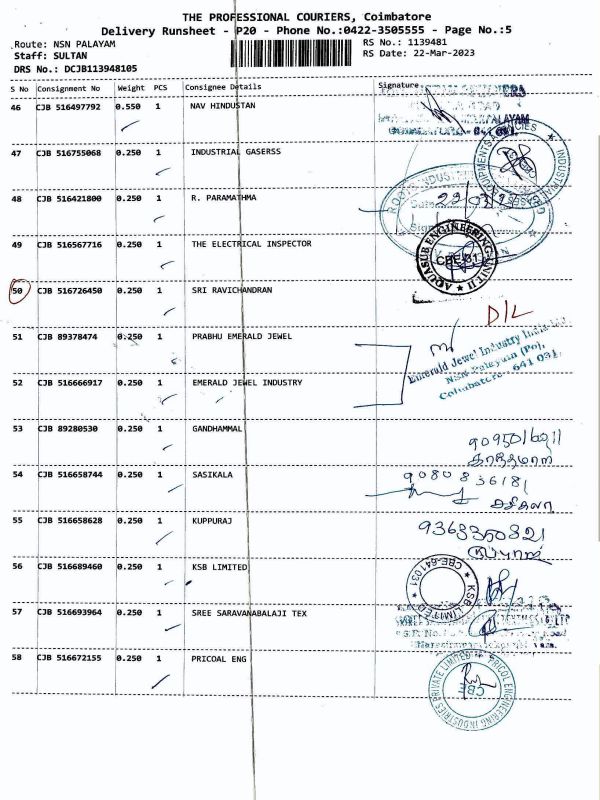 THE PROFESSIONAL COURIERS, Coimbatore
Delivery Runsheet - P20 - Phone No.:0422-3505555 - Page No.:5
Route: NSN PALAYAM
RS No.: 1139481
Staff: SULTAN
RS Date: 22-Mar-2023
DRS No.: DCJB113948105
S No Consignment No Weight PCS Consignee Details Signature
46 CJB 516497792 0.550 1 NAV HINDUSTAN
47 CJB 516755068 0.250 1 INDUSTRIAL GASERSS
48 CJB 516421800 0.250 1 R. PARAMATHMA
49 CJB 516567716 0.250 1 THE ELECTRICAL INSPECTOR
AQUASUB ENGINEERING UNIT II
CBE-31
50 CJB 516726450 0.250 1 SRI RAVICHANDRAN
D/L
51 CJB 89378474 0.250 1 PRABHU EMERALD JEWEL
Emerald Jewel Industry India Ltd.
NSN Palayam (Po),
Coimbatore - 641 031.
52 CJB 516666917 0.250 1 EMERALD JEWEL INDUSTRY
53 CJB 89280530 0.250 1 GANDHAMMAL
54 CJB 516658744 0.250 1 SASIKALA
9080836181
சசிகலா
55 CJB 516658628 0.250 1 KUPPURAJ
9363350821
குப்புராஜ்
56 CJB 516689460 0.250 1 KSB LIMITED
KSB LIMITED
CBE-641031
57 CJB 516693964 0.250 1 SREE SARAVANABALAJI TEX
58 CJB 516672155 0.250 1 PRICOAL ENG
PRICOL ENGINEERING INDUSTRIES PRIVATE LIMITED
CBE